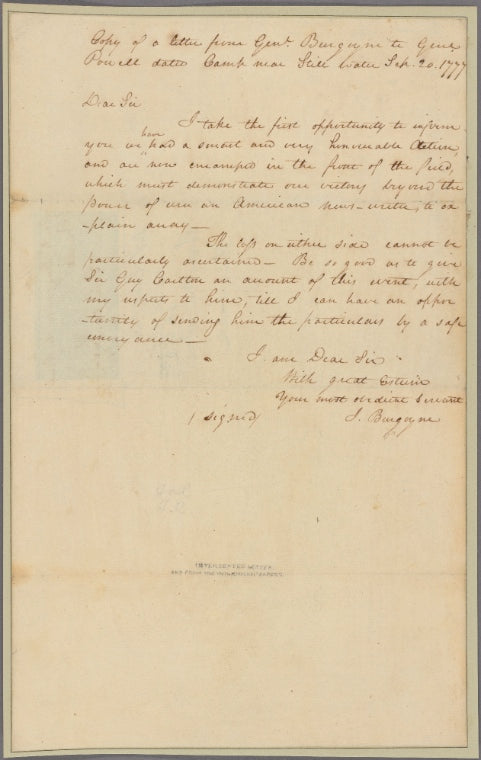 Copy of a letter from Genl. Burgoyne to Genl.
Powell dated Camp near Still water Sep. 20. 1777
Dear Sir
I take the first opportunity to inform
you we have had a smart and very honourable Action,
and are now encamped in the front of the field,
which must demonstrate our victory beyond the
power of even an American news-writer, to ex
-plain away—
The loss on either side cannot be
particularly ascertained— Be so good as to give
Sir Guy Carlton an account of this event, with
my respects to him, till I can have an oppor
-tunity of sending him the particulars by a safe
conveyance—
I am Dear Sir
With great Esteem
Your most obedient Servant
(signed) J. Burgoyne
INTERCEPTED LETTER